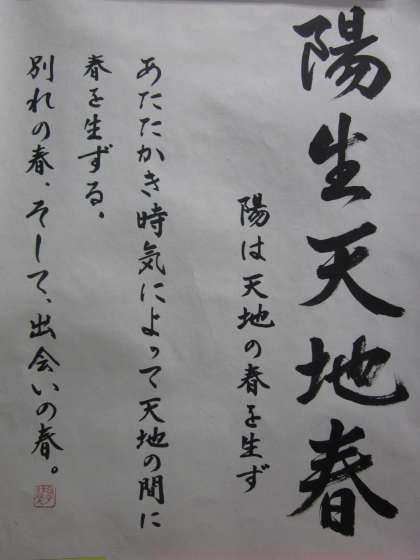 陽生天地春
陽は天地の春を生ず
あたたかき時気によって天地の間に
春を生ずる。
別れの春、そして、出会いの春。